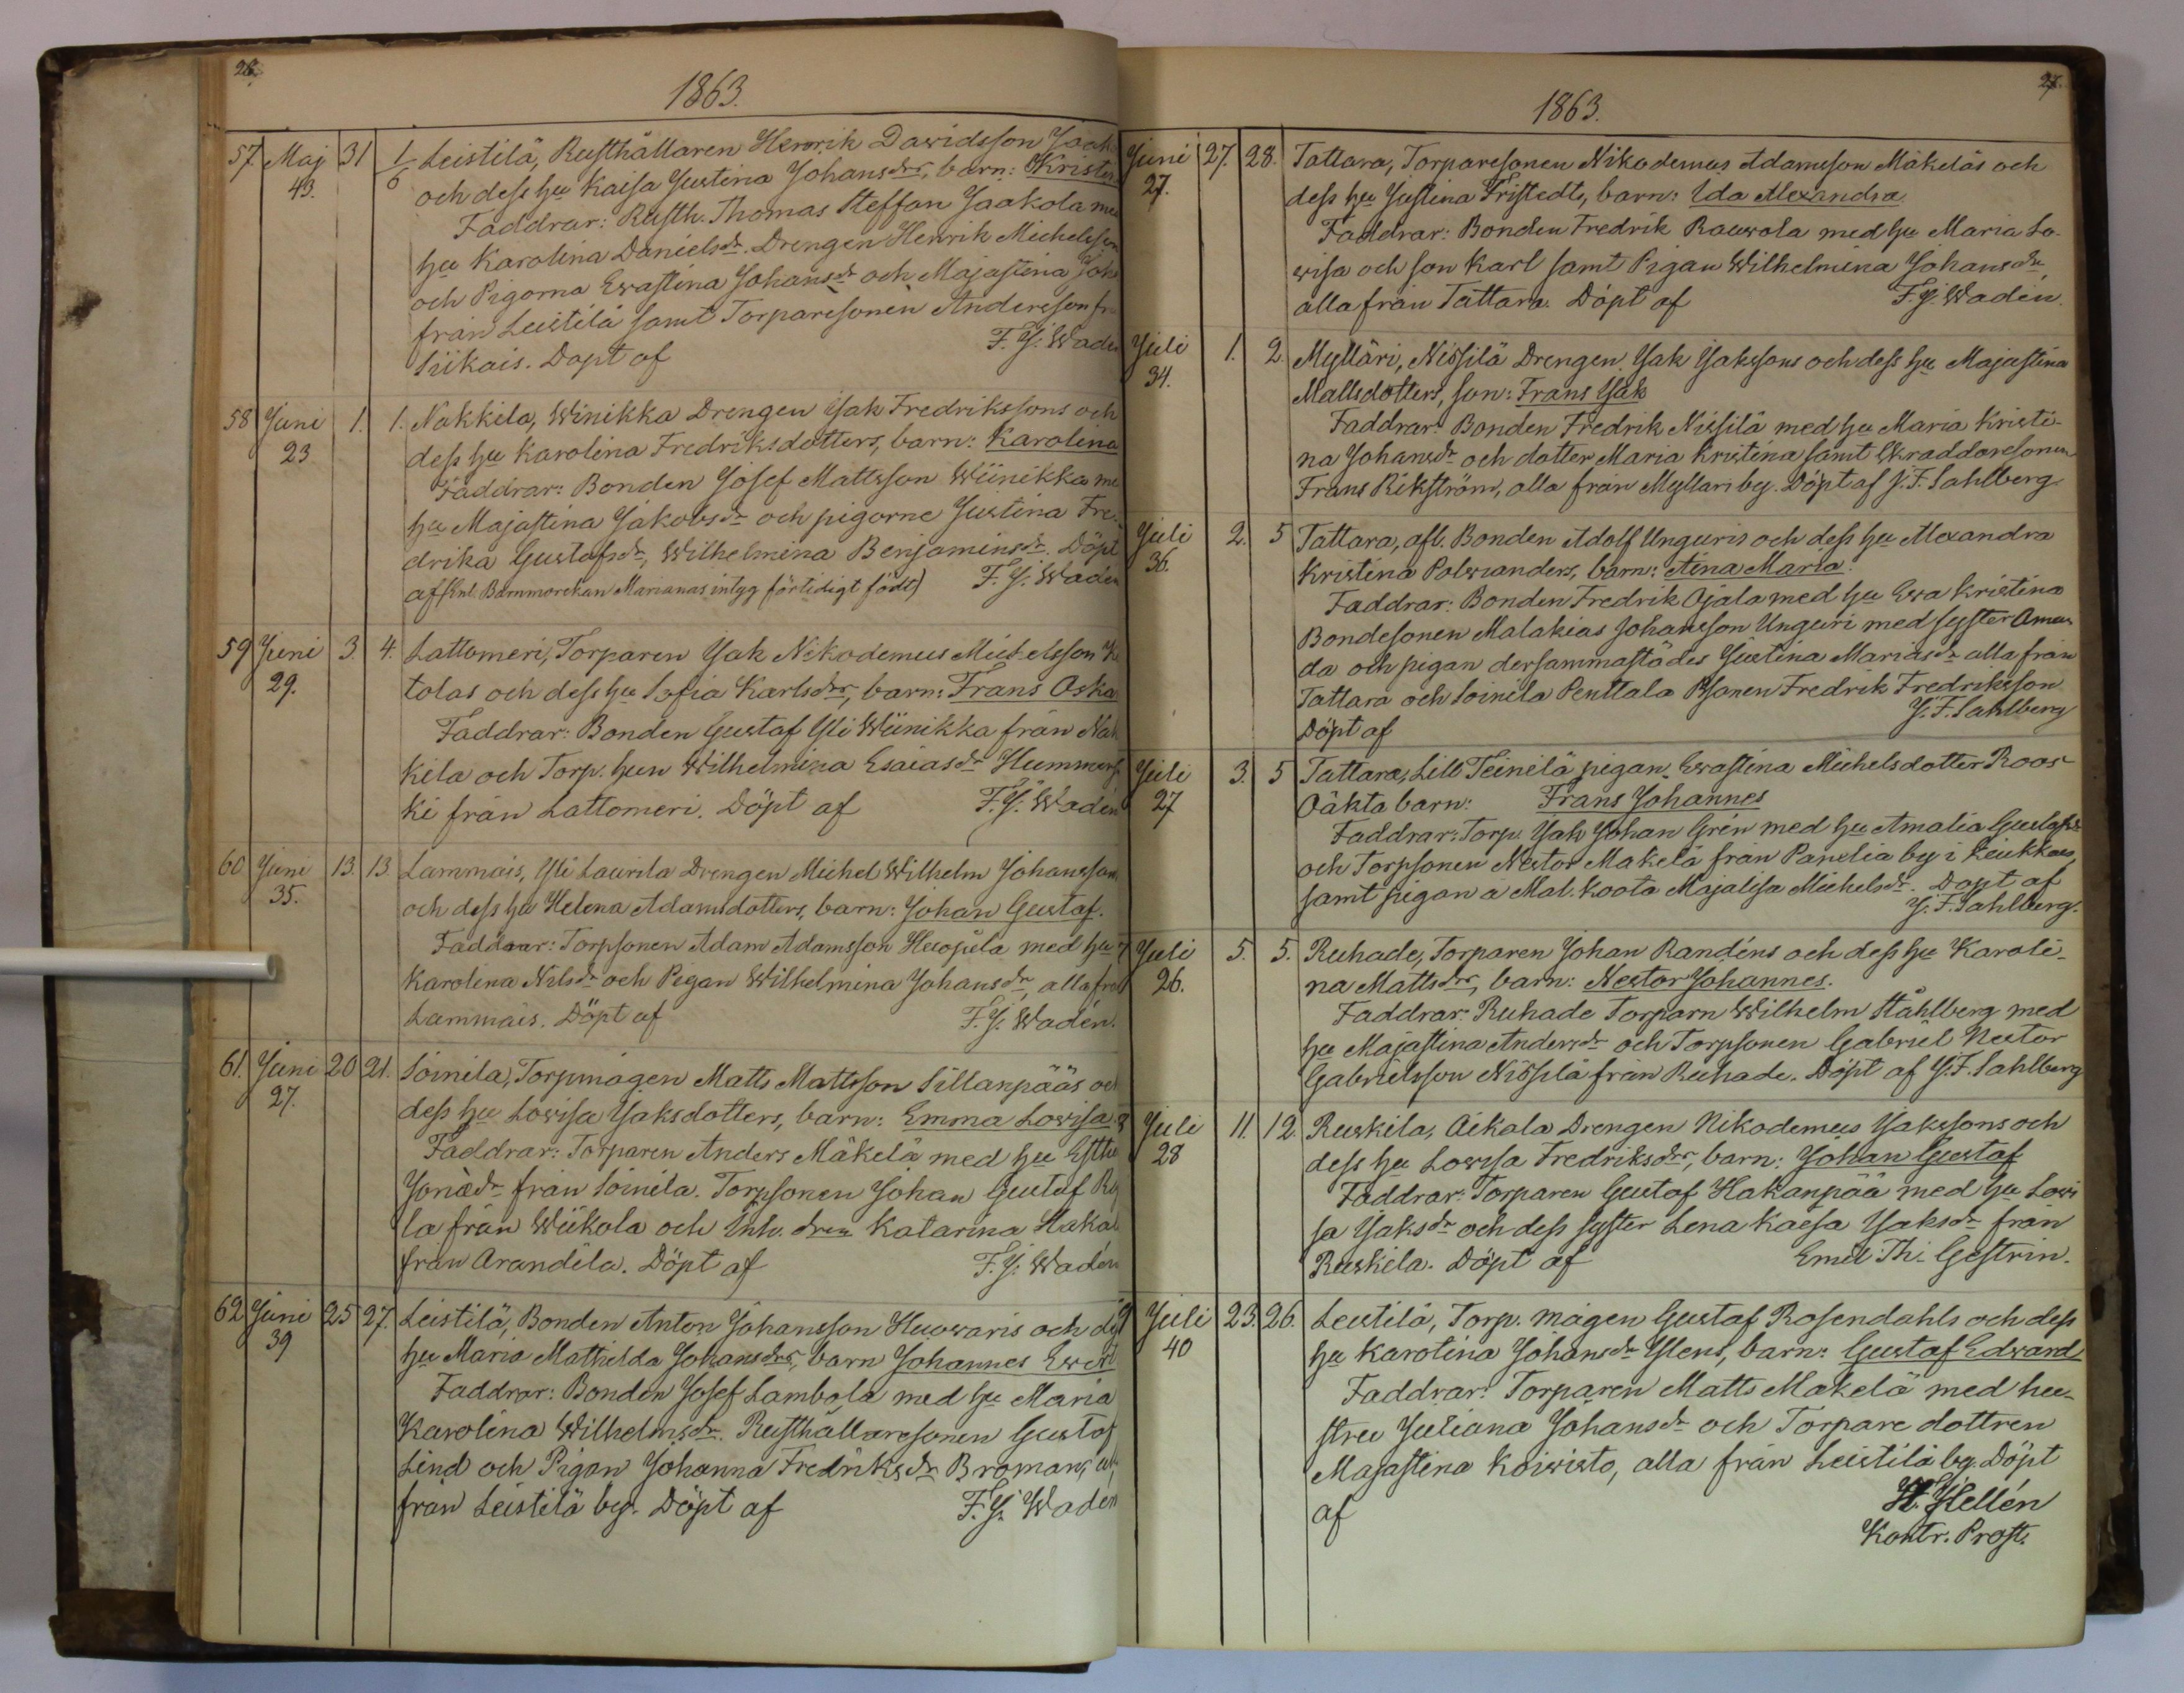 26.
1863.
57. Maj 31 1/6 Leistilä, Rusthållaren Henrik Dawidsson
43. och dess hu Kaisa Justina Johansdrs, barn:
Faddrar: Rusth. Thomas Steffan Jaakola
hu Karolina Danielsdr. Drengen Henrik Michelsson
och Pigorna Ewastina Johansdr och Majastina
från Leistilä samt Torparesonen Andersson
Siikais. Döpt af F. J. Wadén
58 Juni 1. 1. Nakkila, Winikka Drengen Jak Fredrikssons och
23 dess hu Karolina Fredriksdotters, barn: Karolina
Faddrar: Bonden Josef Mattsson Wiinikka
hu Majastina Jakobsdr och pigorne Justina Fre-
drika Gustafsdr, Wilhelmina Benjaminsdr. Döpt
af (Enl. Barnmorskan Marianas intyg förtidigt född) F. J. Wadén
59 Juni 3. 4. Lattomeri, Torparen Jak Nikodemus Michelsson
29. tolas och dess hu Sofia Karlsdrs, barn: Frans Oska
Faddrar: Bonden Gustaf Yli Wiinikka från Nak
kila och Torp. hun Wilhelmina Esaiasdr
ki från Lattomeri. Döpt af F. J. Wadén
60 Juni 13. 13. Lammais, Yli Laurila Drengen Michel Wilhelm Johanssons
35. och dess hu Helena Adamsdotters, barn: Johan Gustaf.
Faddrar: Torpsonen Adam Adamsson Huojula med hu
Karolina Nilsdr och Pigan Wilhelmina Johansdr, alla från
Lammais. Döpt af F. J. Wadén.
61. Juni 20 21. Soinila, Torpmågen Matts Mattsson Sillanpääs och
27. dess hu Lowisa Jaksdotters, barn: Emma Lowisa
Faddrar: Torparen Anders Mäkelä med hu
Jonædr från Soinila. Torpsonen Johan Gustaf
la från Wiikola och Inh. dren Katarina
från Arandila. Döpt af F. J. Wadén
62 Juni 25 27. Leistilä, Bonden Anton Johansson Huowaris och
39 hu Maria Mathilda Johansdrs, barn Johannes
Faddrar: Bonden Josef Lambola med hu Maria
Karolina Wilhelmsdr. Rusthållaresonen Gustaf
Lind och Pigan Johanna Fredriksdr Broman,
från Leistilä by. Döpt af F. J. Wadén
27.
1863.
Juni 27. 28. Tattara, Torparesonen Nikodemus Adamsson Mäkeläs och
27. dess hu Justina Fristedts, barn: Ida Alexandra.
Faddrar: Bonden Fredrik Rauwola med hu Maria Lo-
wisa och son Karl samt Pigan Wilhelmina Johansdr,
alla från Tattara. Döpt af F. J. Wadén.
Juli 1. 2. Mylläri, Nissilä Drengen Jak Jakssons och dess hu Majastina
34. Mattsdotters, son: Frans Jak
Faddrar: Bonden Fredrik Nissilä med hu Maria Kristi-
na Johansdr och dotter Maria Kristina samt Skraddaresonen
Frans Rikström, alla från Myllari by. Döpt af J. F. Sahlberg
Juli 2. 5 Tattara, afl. Bonden Adolf Unguris och dess hu Alexandra
36. Kristina Polwianders, barn: Aina Maria.
Faddrar: Bonden Fredrik Ojala med hu Ewa Kristina
Bondesonen Malakias Johansson Unguri med syster Aman
da och pigan dersammastädes Justina Mariasdr alla från
Tattara och Soinila Penttala Bsonen Fredrik Fredriksson
Döpt af J. F. Sahlberg
Juli 3. 5 Tattara, Lill Teinilä pigan Ewastina Michelsdotter Roos
27 Oäkta barn: Frans Johannes
Faddrar: Torp. Jak Johan Grén med hu Amalia Gustafsdr
och Torpsonen Nestor Makelä från Panelia by i Keukkais,
samt pigan a Mal. Koota Majalisa Michelsdr. Döpt af
J. F. Sahlberg.
Juli 5. 5. Ruhade, Torparen Johan Randéns och dess hu Karoli-
26. na Mattsdrs, barn: Nestor Johannes.
Faddrar: Ruhade Torparn Wilhelm Ståhlberg med
hu Majastina Andersdr och Torpsonen Gabriel Nestor
Gabrielsson Nissilä från Ruhade. Döpt af J. F. Sahlberg
Juli 11. 12. Ruskila, Aikala Drengen Nikodemus Jakssons och
28 dess hu Lowisa Fredriksdrs, barn: Johan Gustaf
Faddrar: Torparen Gustaf Hakanpää med hu Lowi
sa Jaksdr och dess syster Lena Kaisa Jaksdr från
Ruskila. Döpt af Emil Th. Gestrin.
Juli 23. 26. Leistilä, Torp. mågen Gustaf Rosendahls och dess
40 hu Karolina Johansdr Ylens, barn: Gustaf Edward
Faddrar: Torparen Matts Makelä med hu-
stru Juliana Johansdr och Torpare dottren
Majastina Koiwisto, alla från Leistilä by. Döpt
af H. Hellén
Kontr. Prost.